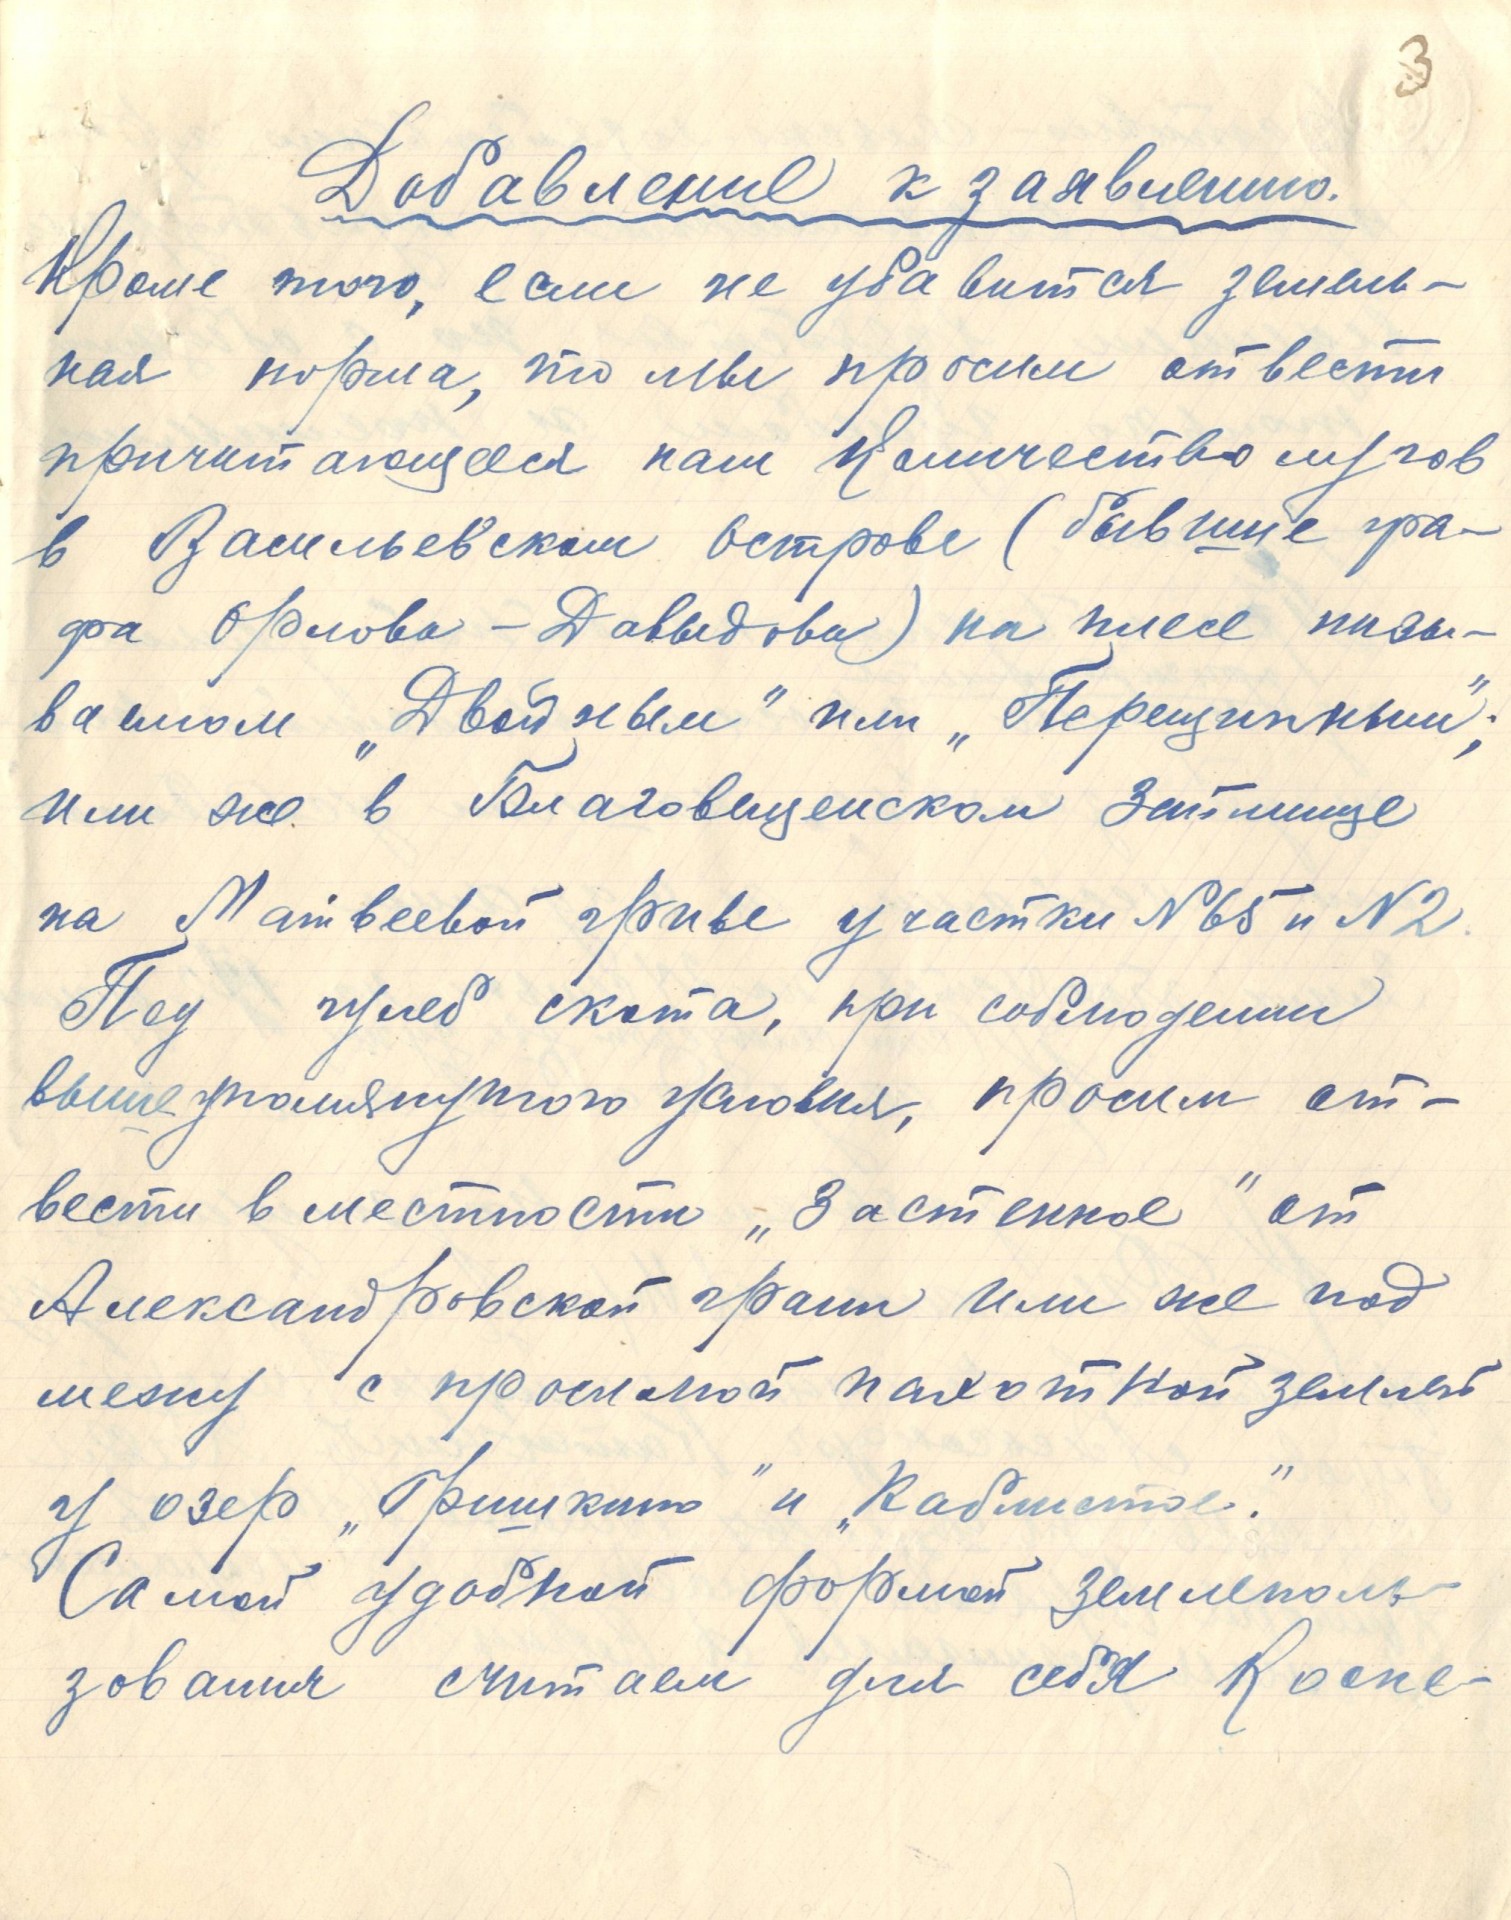 3
Добавление к заявлению.
Кроме того, если не убавится земель-
ная норма, то мы просим отвести
причитающееся нам количество лугов
в Васильевском острове (бывшие гра-
фа Орлова-Давыдова) на плесе назы-
ваемом „Двойным" или „Перещипный";
или же в Благовещенском Затмище
на Матвеевой гриве участки №65 и №2.
Под хлеб скота, при соблюдении
вышеупомянутого условия, просим от-
вести в местности „Застенное" от
Александровской грани или же под
межу с просимой пахотной землей
у озер „Гришкино" и „Каблистое."
Самой удобной формой земleполь-
зования считаем для себя Косне-